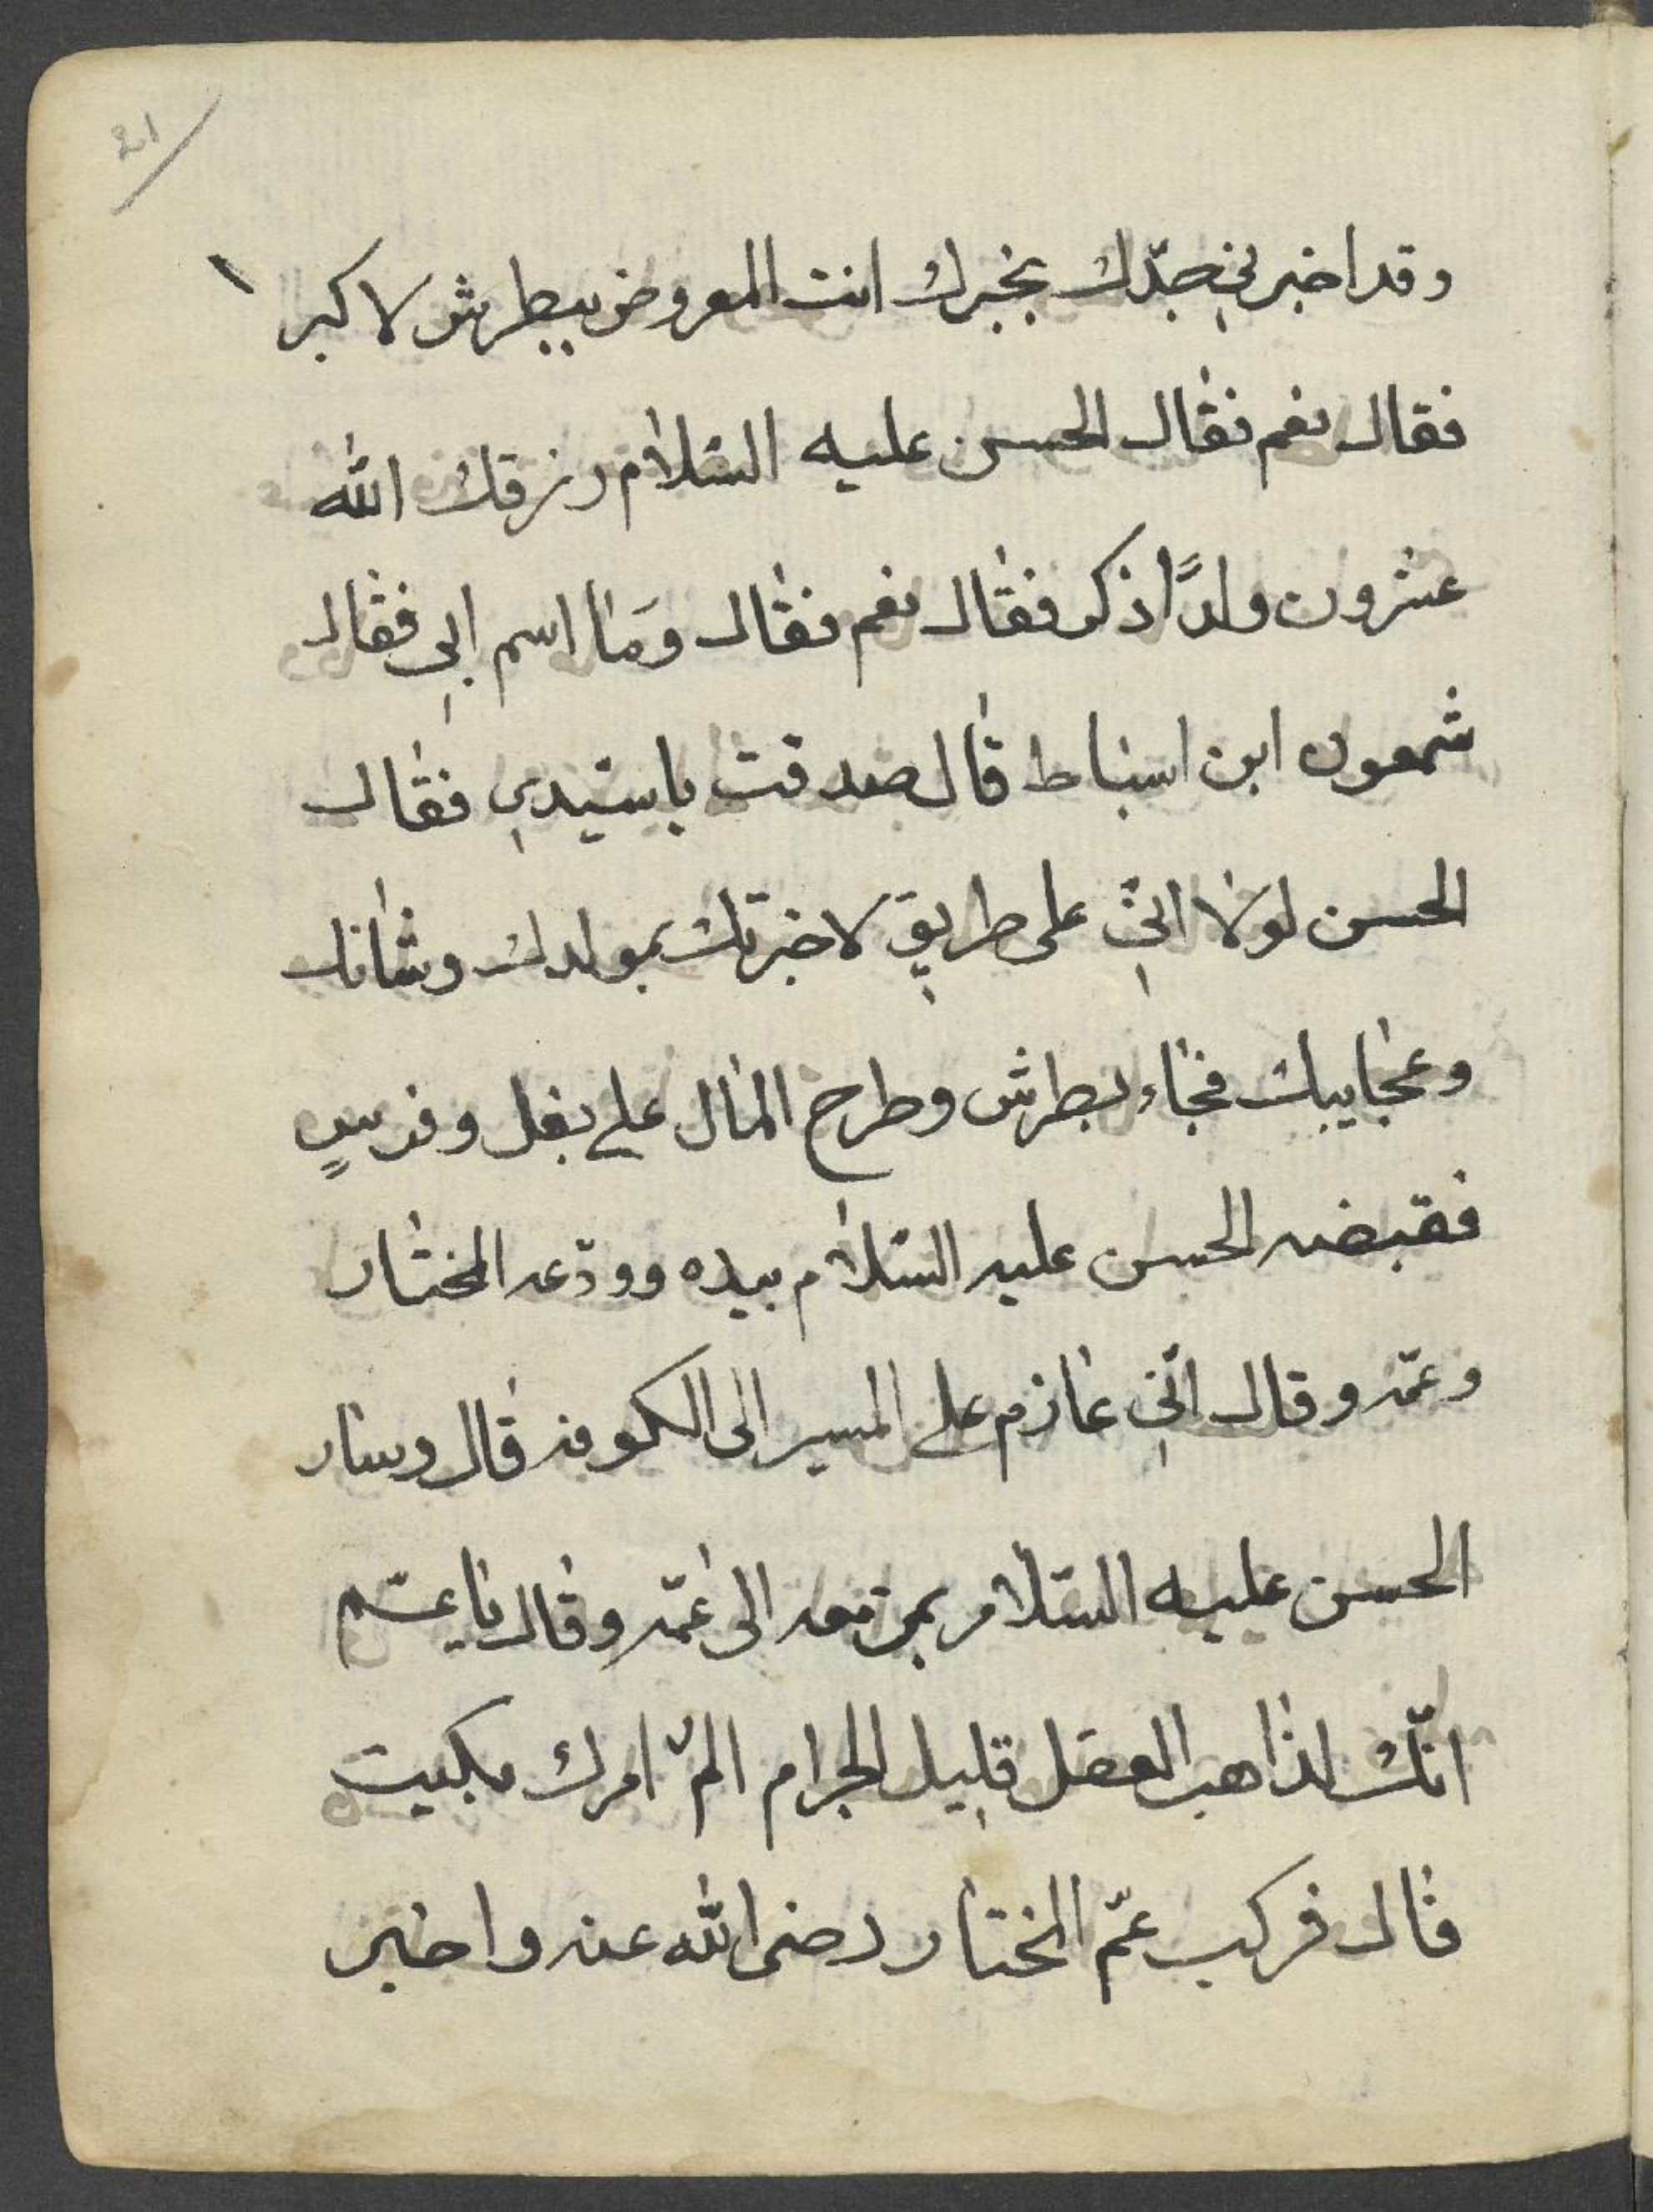 21
وقد اخبرني جدّك بخبرك انت المعروف ببطرش لاكبر
فقال نعم فقال الحسن عليه السّلام رزقك الله
عشرون ولدًا ذكر فقال نعم فقال ومَا اسم ابي فقال
شمعون ابن اسباط قال صدقت ياسيّدي فقال
الحسن لولا انّي على طريق لاخبرتك بمولدك وشانك
وعجايبك فجاء بطرش وطرح المال على بغل وفرسٍ
فقبضه الحسن عليه السّلام بيده وودّعه المختار
وعمّه وقال انّي عازم على المسير الى الكوفه قال وسار
الحسن عليه السّلام بمن معه الى عمّه وقال ياعمّ
انّك لذاهب العقل قليل الجرام الم امرك
قال فركب عمّ المختار رضى الله عنه واخبر